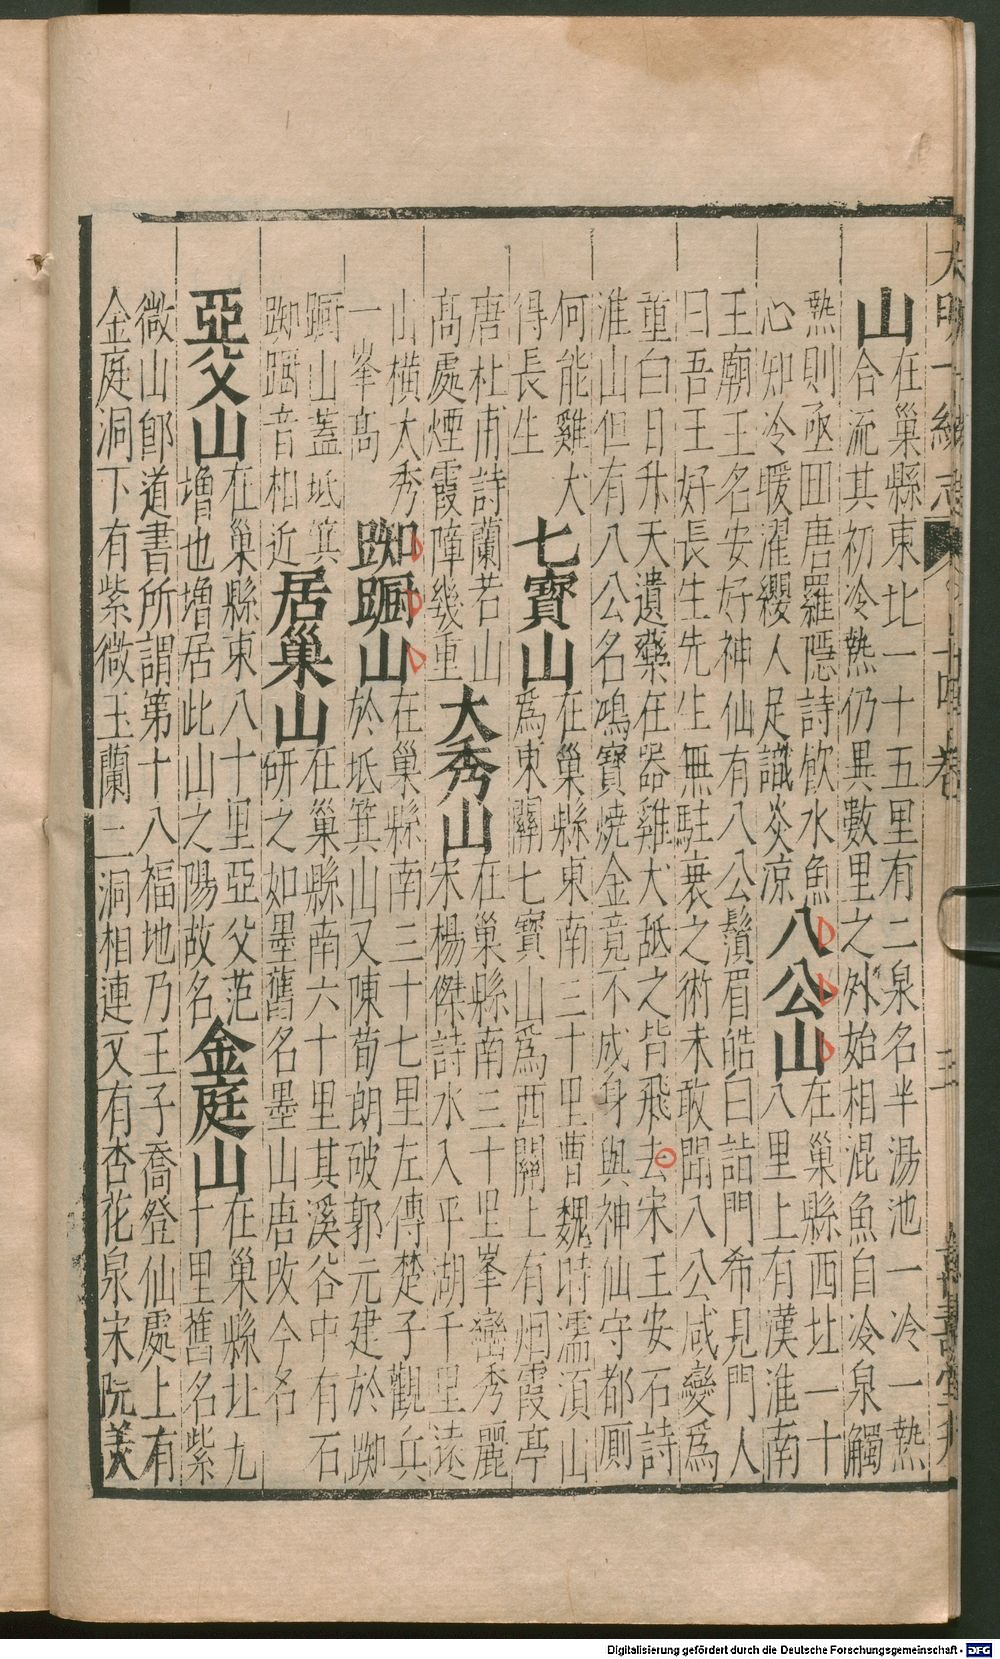 大明一統志 卷之十四 卷 三 萬壽堂刊
山
在巢縣東北一十五里有二泉名半湯池一冷一熱
合流其初冷熱仍異數里之外始相混魚自冷泉觸
熱則亟回唐羅隱詩飲水魚
心知冷暖濯纓人足識炎涼
八公山
在巢縣西北一十
八里上有漢淮南
王廟王名安好神仙有八公鬚眉皓白詣門希見門人
曰吾王好長生先生無駐衰之術未敢聞八公咸變為
童白日升天遺藥在器雞犬舐之皆飛去宋王安石詩
淮山但有八公名鴻寶燒金竟不成身與神仙守都厠
何能雞犬
得長生
七寶山
在巢縣東南三十里曹魏時濡湏山
為東關七寶山為西關上有烟霞亭
唐杜甫詩蘭若山
高處煙霞障幾重
大秀山
在巢縣南三十里峯巒秀麗
宋楊傑詩水入平湖千里遠
山橫大秀
一峯高
踟䠧山
在巢縣南三十七里左傳楚子觀兵
於坻箕山又陳荀朗破郭元建於踟
䠧山蓋坻箕
踟䠧音相近
居巢山
在巢縣南六十里其溪谷中有石
研之如墨舊名墨山唐改今名
亞父山
在巢縣東八十里亞父范
增也增居此山之陽故名
金庭山
在巢縣北九
十里舊名紫
微山即道書所謂第十八福地乃王子喬登仙處上有
金庭洞下有紫微玉蘭三洞相連又有杏花泉宋阮美
Digitalisierung gefördert durch die Deutsche Forschungsgemeinschaft - DFG